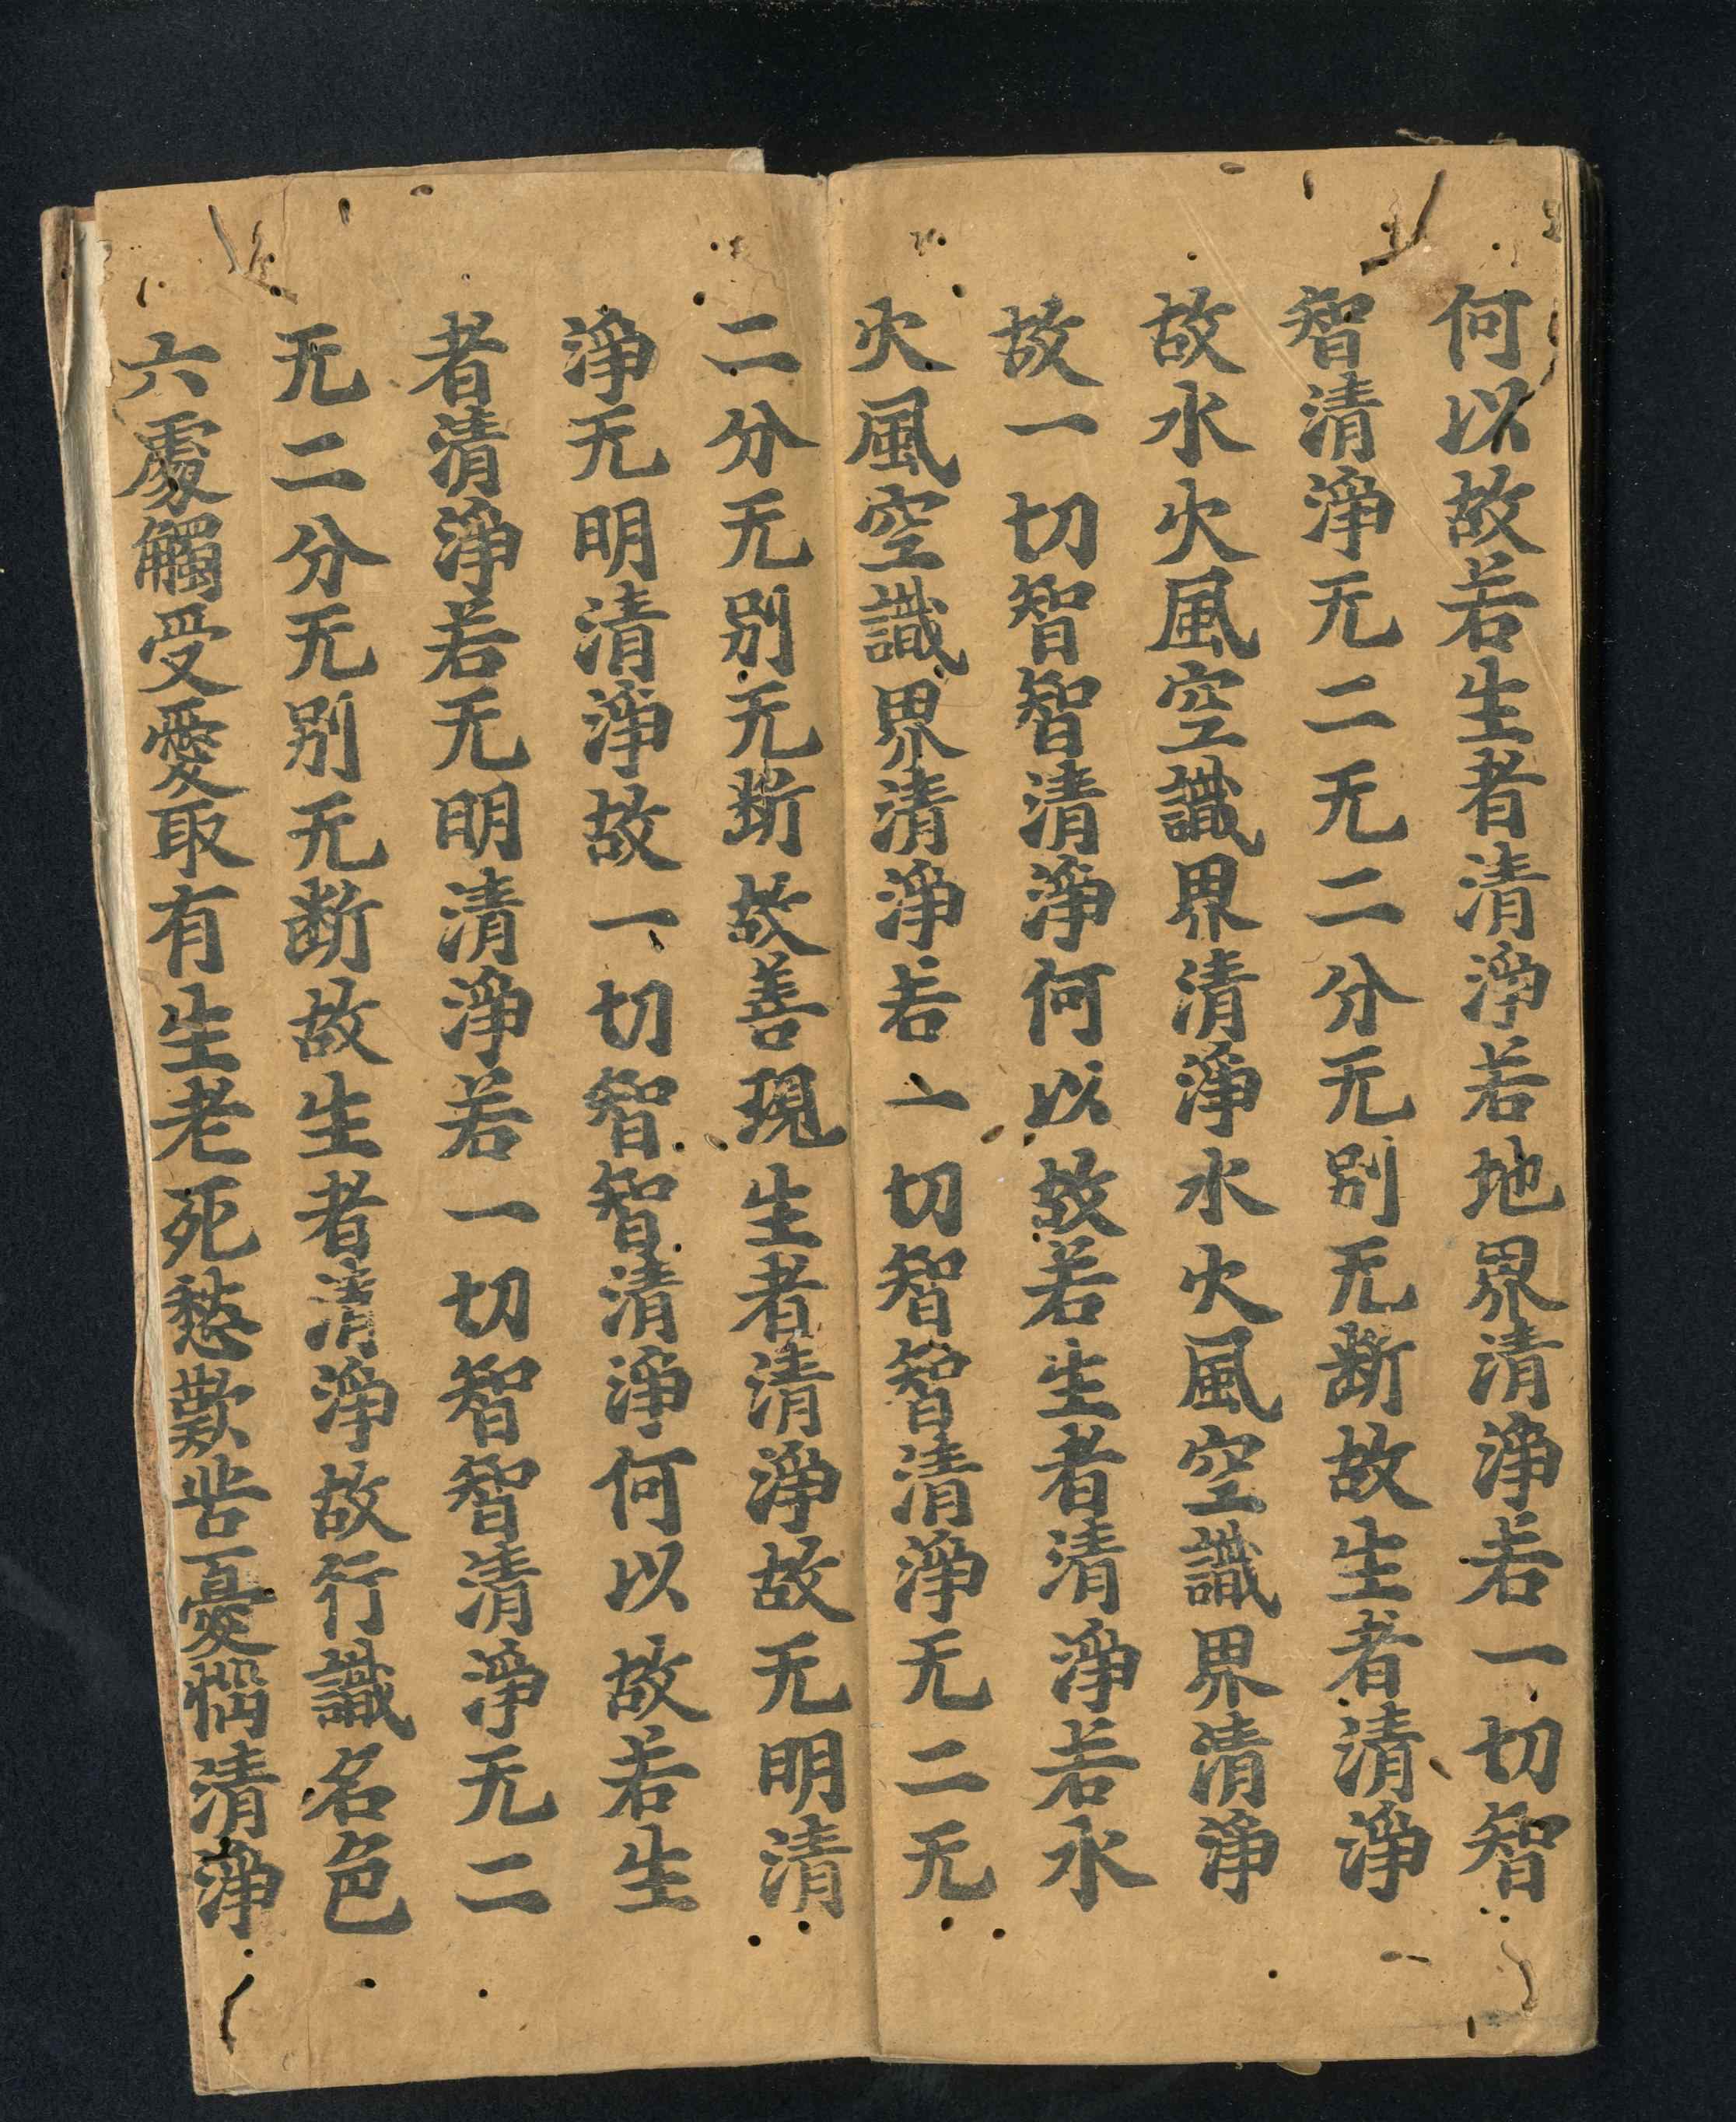 何以故若生者清淨若地界清淨若一切智
智清淨无二无二分无別无斷故生者清淨
故水火風空識界清淨水火風空識界清淨
故一切智智清淨何以故若生者清淨若水
火風空識界清淨若一切智智清淨无二无
二分无別无斷故善現生者清淨故无明清
淨无明清淨故一切智智清淨何以故若生
者清淨若无明清淨若一切智智清淨无二
无二分无別无斷故生者清淨故行識名色
六處觸受愛取有生老死愁歎苦憂惱清淨